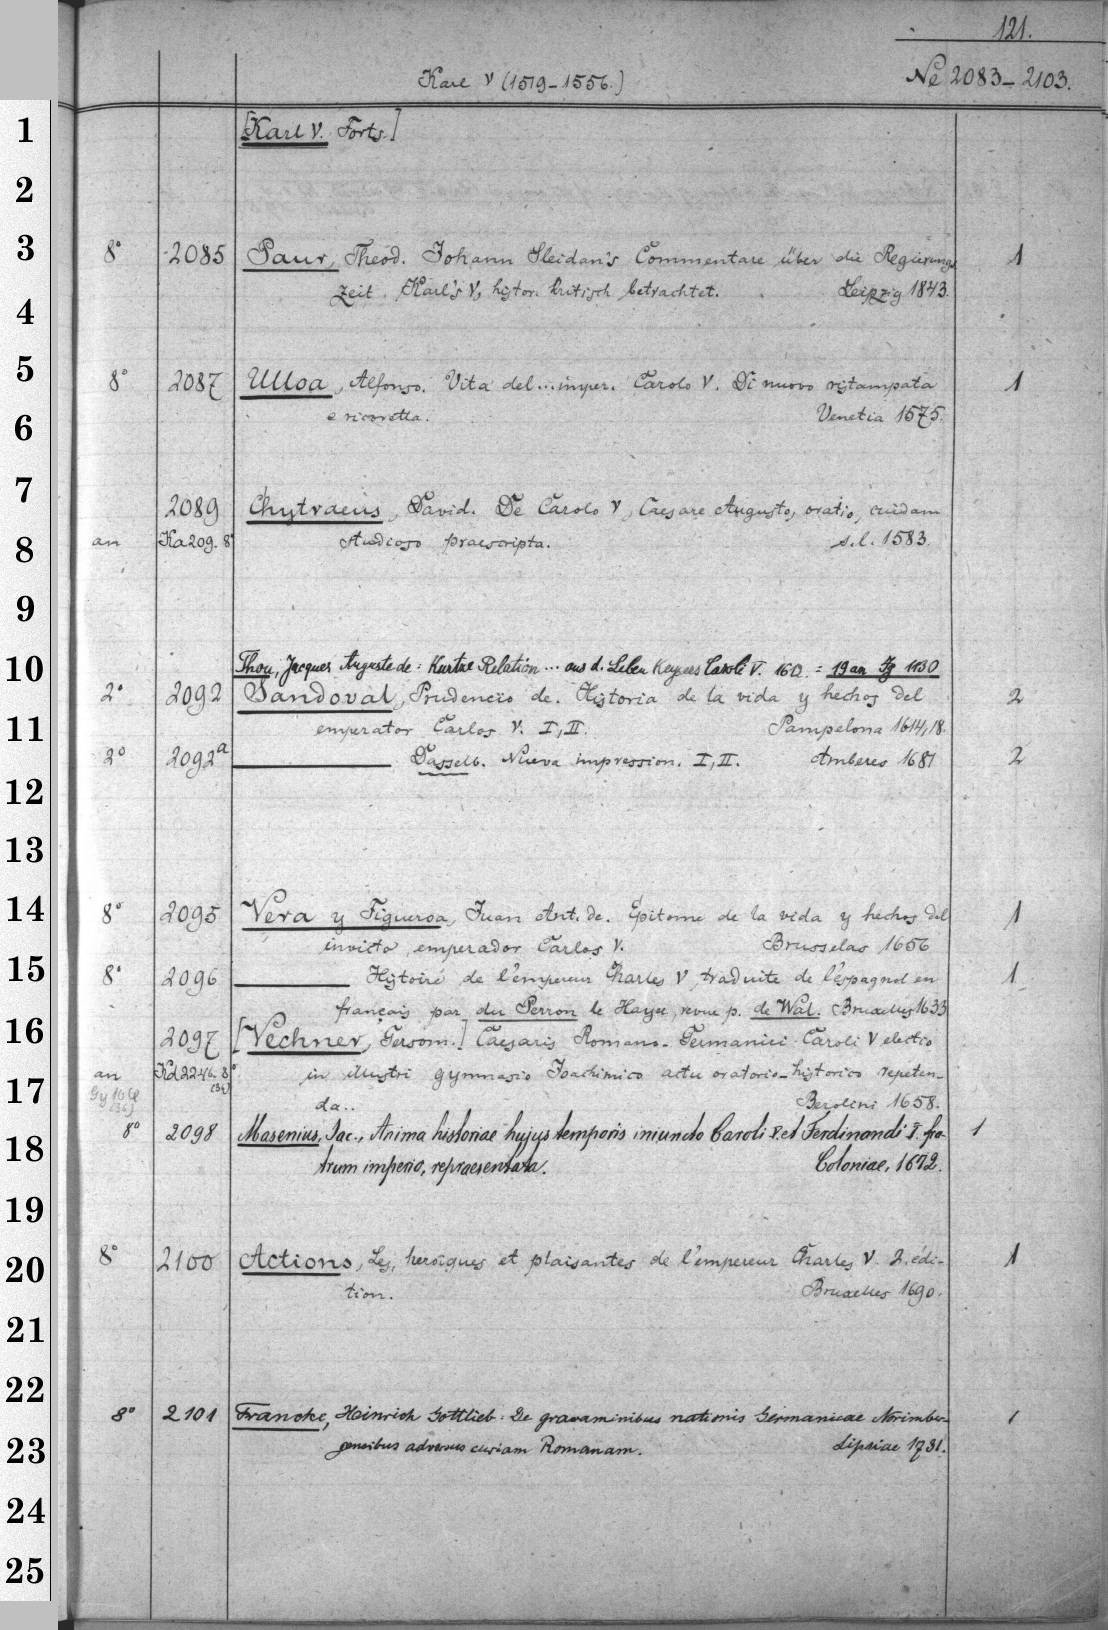 121.
Karl V (1519-1556.) № 2083-2103.
1 [Karl V. Forts.]
2
3 8° 2085 Paur, Theod. Johann Sleidan's Commentare über die Regierungs 1
zeit Karl's V, histor. kritisch betrachtet. Leipzig 1843.
4
5 8° 2087 Ulloa, Alfonso. Vita del... imper. Carolo V. Di nuovo ristampata 1
6 e ricoretta. Venetia 1575.
7 2089 Chytraeus, David. De Carolo V, Caesare Augusto, oratio, cuidam
8 an Ka 209. 8° studioso praescripta. s.l. 1583.
9
10 Thou, Jacques Auguste de: Kurtze Relation ... aus d. Leben Keysers Caroli V. = 19 an Jg 1130
2° 2092 Sandoval, Prudencio de. Historia de la vida y hechos del 2
11 emperator Carlos V. I, II. Pampelona 1614,18.
2° 2092a Dasselb. Nueva impression. I, II. Amberes 1681 2
12
13
14 8° 2095 Vera y Figueroa, Juan Ant. de. Epitome de la vida y hechos del 1
invicto emperador Carlos V. Brusselas 1656
15 8° 2096 Histoire de l'empereur Charles V, traduite de l'espagnol en 1
français par du Perron le Hayer, revue p. de Wal. Bruxelles 1633
16 2097 [Vechner, Gersom.] Caesaris Romano-Germanici Caroli V electio
17 an Kd 2246. 8° in illustri gymnasio Joachimico actu oratorio-historico repeten-
da.. Berolini 1658.
18 8° 2098 Masenius, Jac., Anima historiae hujus temporis iniuncto Caroli V. et Ferdinandi I. fra- 1
trum imperio, repraesentata. Coloniae, 1672.
19
20 8° 2100 Actions, Les, heroïques et plaisantes de l'empereur Charles V. 2. édi- 1
tion. Bruxelles 1690.
21
22
8° 2101 Francke, Heinrich Gottlieb: De gravaminibus nationis Germanicae Norimber- 1
23 gensibus adversus curiam Romanam. Lipsiae 1731.
24
25